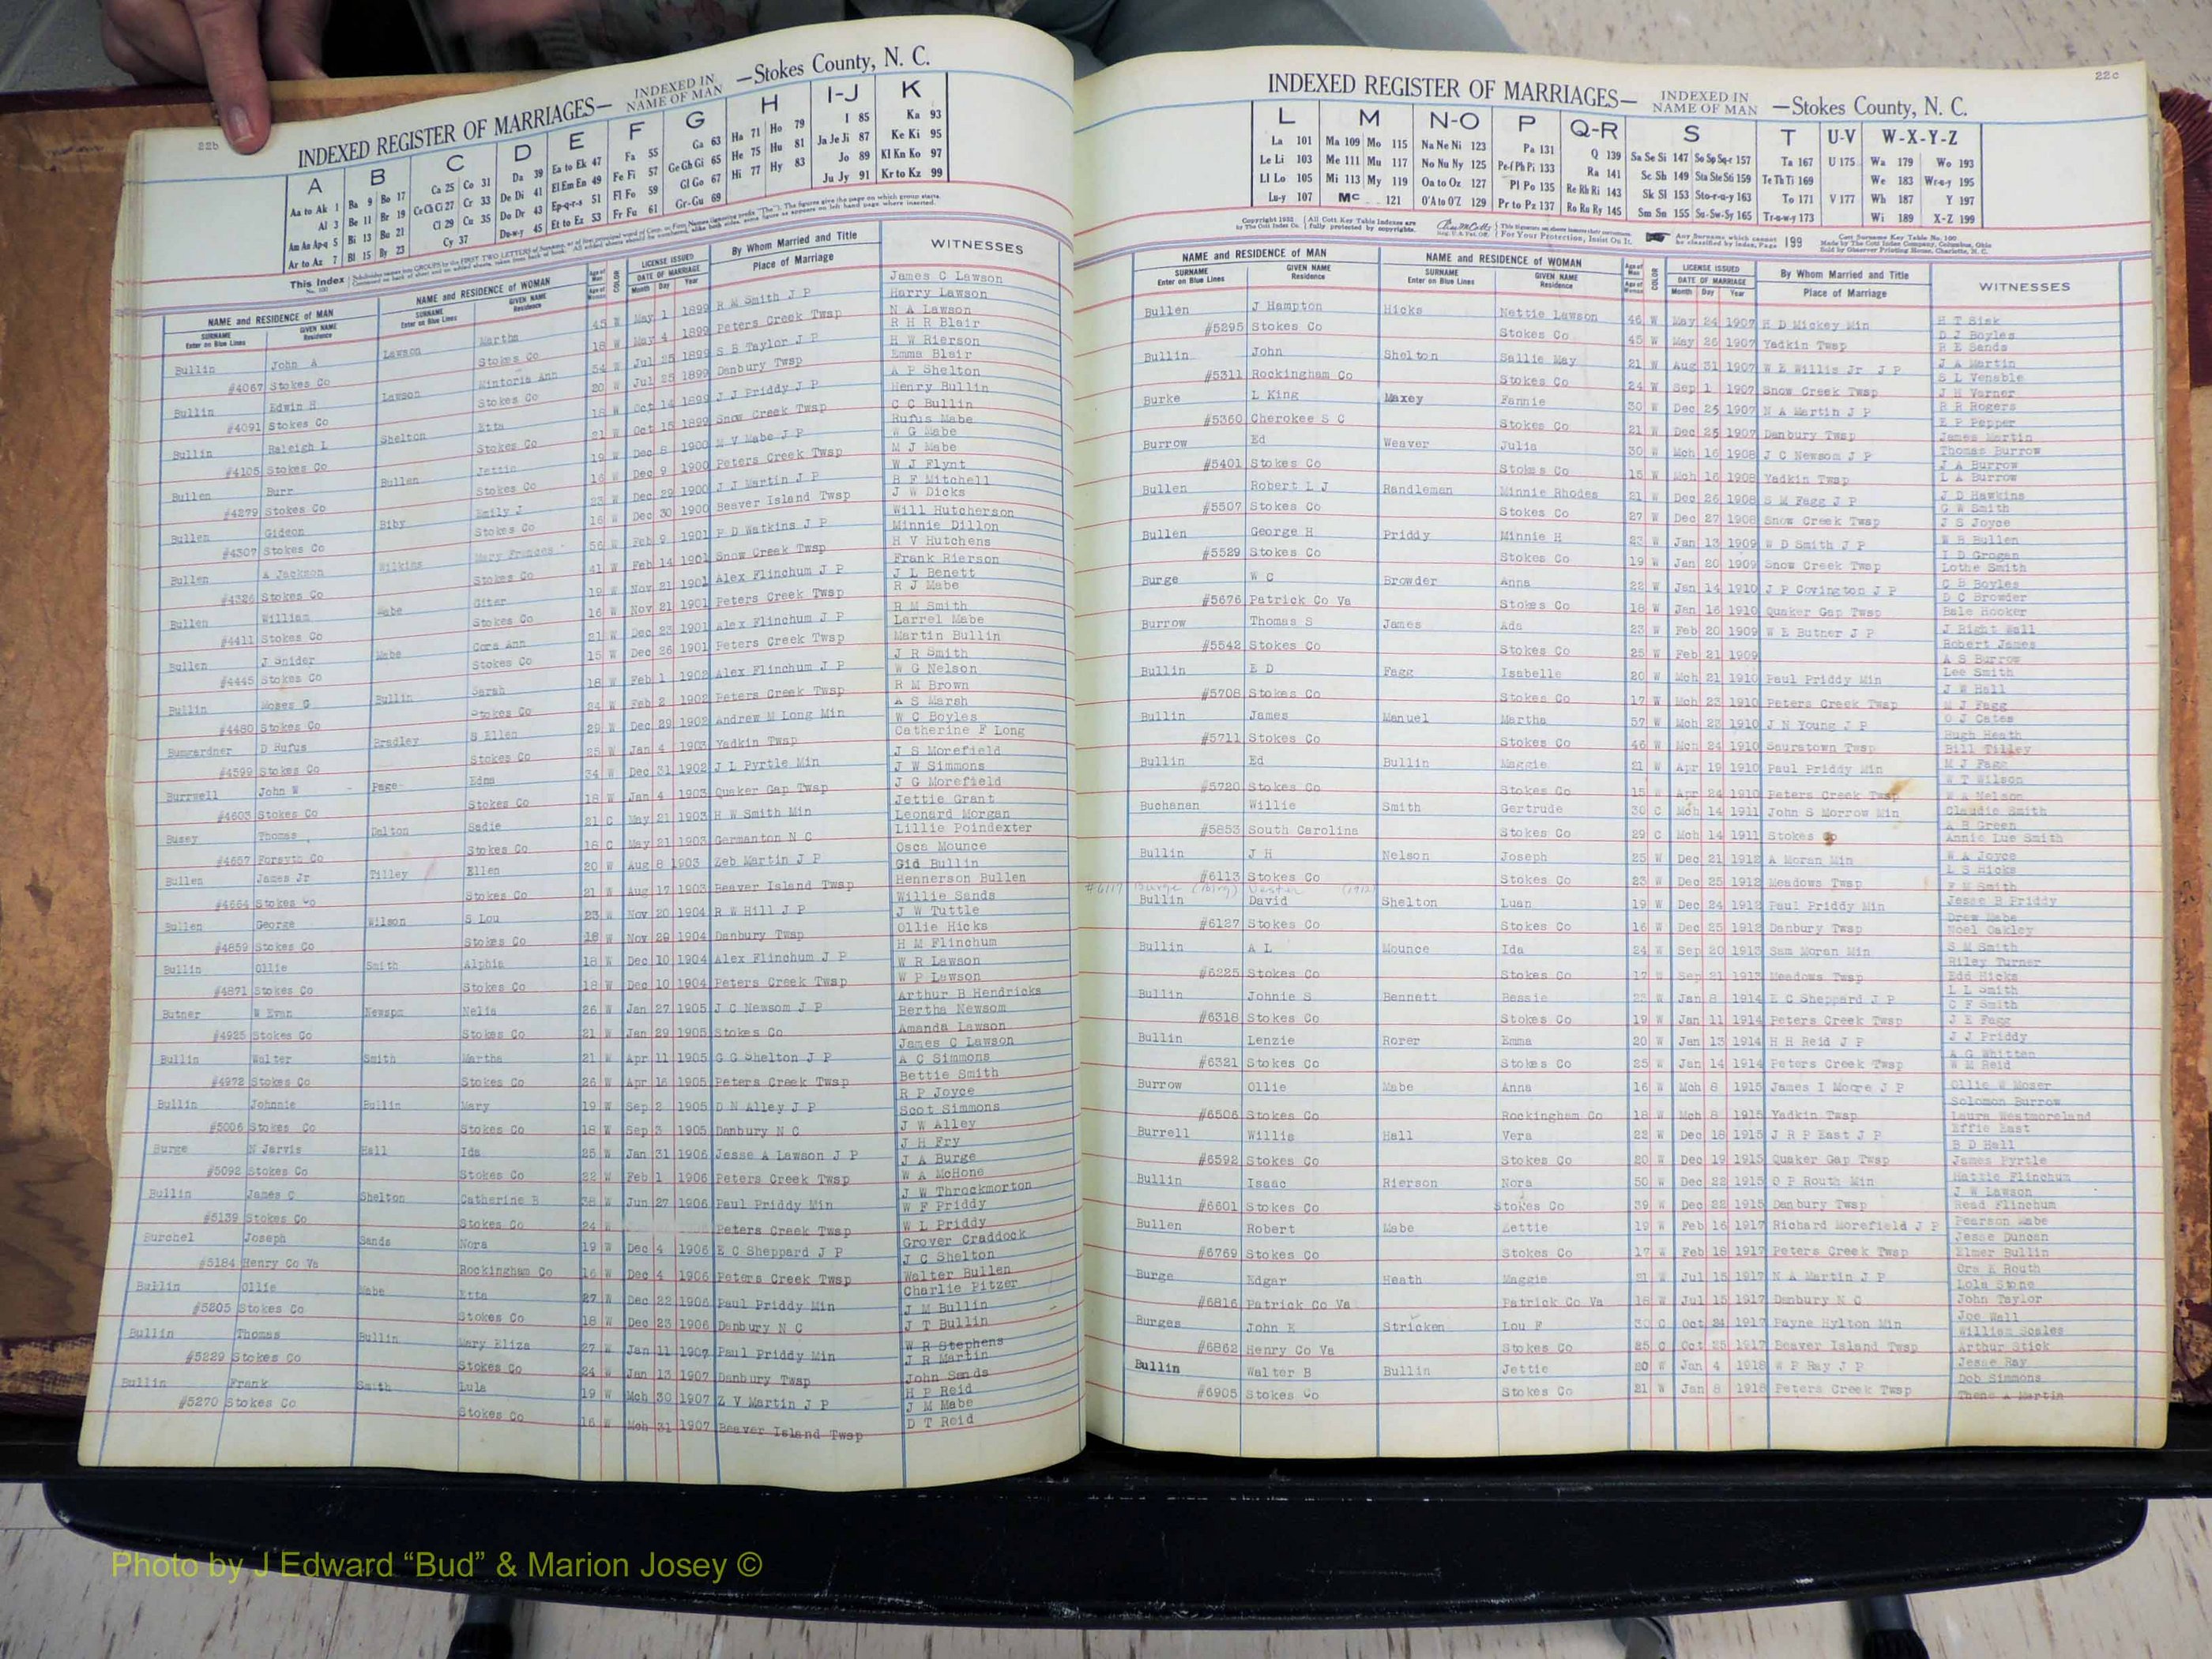 22b
INDEXED REGISTER OF MARRIAGES— INDEXED IN NAME OF MAN —Stokes County, N. C.
A B C D E F G H I-J K
Aa to Ak 1 Ba 9 Bo 17 Ca 25 Co 31 Da 39 Ea to Ek 47 Fa 55 Ga 63 Ha 71 Ho 79 I 85 Ka 93
Al 3 Be 11 Br 19 Ce Ch Ci 27 Cr 33 De Di 41 El Em En 49 Fe Fi 57 Ge Gh Gi 65 He 75 Hu 81 Ja Je Ji 87 Ke Ki 95
Am An Ap-q 5 Bi 13 Bu 21 Cl 29 Cu 35 Do Dr 43 Ep-q-r-s 51 Fl Fo 59 Gl Go 67 Hi 77 Hy 83 Jo 89 Kl Kn Ko 97
Ar to Az 7 Bl 15 By 23 Cy 37 Du-w-y 45 Et to Ez 53 Fr Fu 61 Gr-Gu 69 Ju Jy 91 Kr to Kz 99
NAME and RESIDENCE of MAN NAME and RESIDENCE of WOMAN LICENSE ISSUED By Whom Married and Title WITNESSES
SURNAME Enter on Blue Lines GIVEN NAME Residence SURNAME Enter on Blue Lines GIVEN NAME Residence COLOR DATE OF MARRIAGE Month Day Year Place of Marriage
Bullin John A Lawson Martha 45 W May 1 1899 R M Smith J P James C Lawson
Harry Lawson
#4067 Stokes Co Stokes Co 18 W May 4 1899 Peters Creek Twsp N A Lawson
Bullin Edwin H Lawson Mintoria Ann 54 W Jul 25 1899 S B Taylor J P R H R Blair
H W Rierson
#4091 Stokes Co Stokes Co 20 W Jul 25 1899 Danbury Twsp Emma Blair
Bullin Raleigh L Shelton Etta 18 W Oct 14 1899 J J Priddy J P A P Shelton
Henry Bullin
#4105 Stokes Co Stokes Co 21 W Oct 15 1899 Snow Creek Twsp C C Bullin
Bullen Burr Bullen Jettie 19 W Dec 8 1900 M V Mabe J P Rufus Mabe
W G Mabe
#4279 Stokes Co Stokes Co 16 W Dec 9 1900 Peters Creek Twsp M J Mabe
Bullen Gideon Biby Emily J 23 W Dec 29 1900 J J Martin J P W J Flynt
B F Mitchell
#4307 Stokes Co Stokes Co 16 W Dec 30 1900 Beaver Island Twsp J W Dicks
Bullen A Jackson Wilkins Mary Frances 56 W Feb 9 1901 F D Watkins J P Will Hutcherson
Minnie Dillon
#4326 Stokes Co Stokes Co 41 W Feb 14 1901 Snow Creek Twsp H V Hutchens
Bullen William Mabe Citer 19 W Nov 21 1901 Alex Flinchum J P Frank Rierson
J L Benett
#4411 Stokes Co Stokes Co 16 W Nov 21 1901 Peters Creek Twsp R J Mabe
Bullen J Snider Mabe Cora Ann 21 W Dec 23 1901 Alex Flinchum J P R M Smith
Larrel Mabe
#4445 Stokes Co Stokes Co 15 W Dec 26 1901 Peters Creek Twsp Martin Bullin
Bullin Moses G Bullin Sarah 18 W Feb 1 1902 Alex Flinchum J P J R Smith
W G Nelson
#4480 Stokes Co Stokes Co 24 W Feb 2 1902 Peters Creek Twsp R M Brown
Bumgardner D Rufus Bradley S Ellen 29 W Dec 29 1902 Andrew M Long Min A S Marsh
W C Boyles
#4599 Stokes Co Stokes Co 25 W Jan 4 1903 Yadkin Twsp Catherine F Long
Burrwell John W Page Edna 34 W Dec 31 1902 J L Pyrtle Min J S Morefield
J W Simmons
#4603 Stokes Co Stokes Co 18 W Jan 4 1903 Quaker Gap Twsp J G Morefield
Busey Thomas Dalton Sadie 21 C May 21 1903 H W Smith Min Jettie Grant
Leonard Morgan
#4657 Forsyth Co Stokes Co 18 C May 21 1903 Germanton N C Lillie Poindexter
Bullen James Jr Tilley Ellen 20 W Aug 8 1903 Zeb Martin J P Osca Mounce
Gid Bullin
#4664 Stokes Co Stokes Co 21 W Aug 17 1903 Beaver Island Twsp Hennerson Bullen
Bullen George Wilson S Lou 23 W Nov 20 1904 R W Hill J P Willie Sands
J W Tuttle
#4859 Stokes Co Stokes Co 18 W Nov 29 1904 Danbury Twsp Ollie Hicks
Bullin Ollie Smith Alphia 18 W Dec 10 1904 Alex Flinchum J P H M Flinchum
W R Lawson
#4871 Stokes Co Stokes Co 18 W Dec 10 1904 Peters Creek Twsp W P Lawson
Butner W Evan Newspm Nelia 26 W Jan 27 1905 J C Newsom J P Arthur B Hendricks
Bertha Newsom
#4925 Stokes Co Stokes Co 21 W Jan 29 1905 Stokes Co Amanda Lawson
Bullin Walter Smith Martha 21 W Apr 11 1905 G G Shelton J P James C Lawson
A C Simmons
#4972 Stokes Co Stokes Co 26 W Apr 16 1905 Peters Creek Twsp Bettie Smith
Bullin Johnnie Bullin Mary 19 W Sep 2 1905 D N Alley J P R P Joyce
Scot Simmons
#5006 Stokes Co Stokes Co 18 W Sep 3 1905 Danbury N C J W Alley
Burge N Jarvis Hall Ida 25 W Jan 31 1906 Jesse A Lawson J P J H Fry
J A Burge
#5092 Stokes Co Stokes Co 22 W Feb 1 1906 Peters Creek Twsp W A McHone
Bullin James C Shelton Catherine B 38 W Jun 27 1906 Paul Priddy Min J W Throckmorton
W F Priddy
#5139 Stokes Co Stokes Co 24 W Peters Creek Twsp W L Priddy
Burchel Joseph Sands Nora 19 W Dec 4 1906 E C Sheppard J P Grover Craddock
J C Shelton
#5184 Henry Co Va Rockingham Co 16 W Dec 4 1906 Peters Creek Twsp Walter Bullen
Bullin Ollie Mabe Etta 27 W Dec 22 1906 Paul Priddy Min Charlie Pitzer
J M Bullin
#5205 Stokes Co Stokes Co 18 W Dec 23 1906 Danbury N C J T Bullin
Bullin Thomas Bullin Mary Eliza 27 W Jan 11 1907 Paul Priddy Min W R Stephens
J R Martin
#5229 Stokes Co Stokes Co 24 W Jan 13 1907 Danbury Twsp John Sands
Bullin Frank Smith Lula 19 W Mch 30 1907 Z V Martin J P H P Reid
J M Mabe
#5270 Stokes Co Stokes Co 16 W Mch 31 1907 Beaver Island Twsp D T Reid
22c
INDEXED REGISTER OF MARRIAGES— INDEXED IN NAME OF MAN —Stokes County, N. C.
L M N-O P Q-R S T U-V W-X-Y-Z
La 101 Ma 109 Mo 115 Na Ne Ni 123 Pa 131 Q 139 Sa Se Si 147 So Sp Sq-r 157 Ta 167 U 175 Wa 179 Wo 193
Le Li 103 Me 111 Mu 117 No Nu Ny 125 Pe-f Ph Pi 133 Ra 141 Sc Sh 149 Sta Ste Sti 159 Te Th Ti 169 We 183 Wr-s-y 195
Ll Lo 105 Mi 113 My 119 Oa to Oz 127 Pl Po 135 Re Rh Ri 143 Sk Sl 153 Sto-r-u-y 163 To 171 V 177 Wh 187 Y 197
Lu-y 107 Mc 121 O'A to O'Z 129 Pr to Pz 137 Ro Ru Ry 145 Sm Sn 155 Su-Sw-Sy 165 Tr-u-w-y 173 Wi 189 X-Z 199
NAME and RESIDENCE of MAN NAME and RESIDENCE of WOMAN LICENSE ISSUED By Whom Married and Title WITNESSES
SURNAME Enter on Blue Lines GIVEN NAME Residence SURNAME Enter on Blue Lines GIVEN NAME Residence COLOR DATE OF MARRIAGE Month Day Year Place of Marriage
Bullen J Hampton Hicks Nettie Lawson 46 W May 24 1907 H D Mickey Min H T Sisk
D J Boyles
#5295 Stokes Co Stokes Co 45 W May 26 1907 Yadkin Twsp R E Sands
Bullin John Shelton Sallie May 21 W Aug 31 1907 W E Willis Jr J P J A Martin
S L Venable
#5311 Rockingham Co Stokes Co 24 W Sep 1 1907 Snow Creek Twsp J H Varner
Burke L King Maxey Fannie 30 W Dec 25 1907 N A Martin J P R R Rogers
E P Pepper
#5360 Cherokee S C Stokes Co 21 W Dec 25 1907 Danbury Twsp James Martin
Burrow Ed Weaver Julia 30 W Mch 16 1908 J C Newsom J P Thomas Burrow
J A Burrow
#5401 Stokes Co Stokes Co 15 W Mch 16 1908 Yadkin Twsp L A Burrow
Bullen Robert L J Randleman Minnie Rhodes 21 W Dec 26 1908 S M Fagg J P J D Hawkins
G W Smith
#5507 Stokes Co Stokes Co 27 W Dec 27 1908 Snow Creek Twsp J S Joyce
Bullen George H Priddy Minnie H 23 W Jan 13 1909 W D Smith J P W B Bullen
I D Grogan
#5529 Stokes Co Stokes Co 19 W Jan 20 1909 Snow Creek Twsp Lothe Smith
Burge W C Browder Anna 22 W Jan 14 1910 J P Covington J P C B Boyles
D C Browder
#5676 Patrick Co Va Stokes Co 18 W Jan 16 1910 Quaker Gap Twsp Bale Hooker
Burrow Thomas S James Ada 23 W Feb 20 1909 W E Butner J P J Right Wall
Robert James
#5542 Stokes Co Stokes Co 25 W Feb 21 1909 A S Burrow
Bullin E D Fagg Isabelle 20 W Mch 21 1910 Paul Priddy Min Lee Smith
J W Hall
#5708 Stokes Co Stokes Co 17 W Mch 23 1910 Peters Creek Twsp M J Fagg
Bullin James Manuel Martha 57 W Mch 22 1910 J N Young J P O J Cates
Hugh Heath
#5711 Stokes Co Stokes Co 46 W Mch 24 1910 Sauratown Twsp Bill Tilley
Bullin Ed Bullin Maggie 21 W Apr 19 1910 Paul Priddy Min M J Fagg
W T Wilson
#5720 Stokes Co Stokes Co 15 W Apr 24 1910 Peters Creek Twsp W A Nelson
Buchanan Willie Smith Gertrude 30 C Mch 14 1911 John S Morrow Min Claudie Smith
A B Green
#5853 South Carolina Stokes Co 29 C Mch 14 1911 Stokes Co Annie Lue Smith
Bullin J H Nelson Joseph 25 W Dec 21 1912 A Moran Min W A Joyce
L S Hicks
#6113 Stokes Co Stokes Co 23 W Dec 25 1912 Meadows Twsp F M Smith
#6117 Burge (Birg) Vester (1912)
Bullin David Shelton Luan 19 W Dec 24 1912 Paul Priddy Min Jesse B Priddy
Drew Mabe
#6127 Stokes Co Stokes Co 16 W Dec 25 1912 Danbury Twsp Noel Oakley
Bullin A L Mounce Ida 24 W Sep 20 1913 Sam Moran Min S M Smith
Riley Turner
#6225 Stokes Co Stokes Co 17 W Sep 21 1913 Meadows Twsp Edd Hicks
Bullin Johnie S Bennett Bessie 23 W Jan 8 1914 E C Sheppard J P L L Smith
C F Smith
#6318 Stokes Co Stokes Co 19 W Jan 11 1914 Peters Creek Twsp J E Fagg
Bullin Lenzie Rorer Emma 20 W Jan 13 1914 H H Reid J P J J Priddy
A G Whitten
#6321 Stokes Co Stokes Co 25 W Jan 14 1914 Peters Creek Twsp W M Reid
Burrow Ollie Mabe Anna 16 W Mch 8 1915 James I Moore J P Ollie W Moser
Solomon Burrow
#6506 Stokes Co Rockingham Co 18 W Mch 8 1915 Yadkin Twsp Laura Westmoreland
Burrell Willis Hall Vera 22 W Dec 18 1915 J R P East J P Effie East
B D Hall
#6592 Stokes Co Stokes Co 20 W Dec 19 1915 Quaker Gap Twsp James Pyrtle
Bullin Isaac Rierson Nora 50 W Dec 22 1915 O P Routh Min Hattie Flinchum
J W Lawson
#6601 Stokes Co Stokes Co 39 W Dec 22 1915 Danbury Twsp Read Flinchum
Bullen Robert Mabe Lettie 19 W Feb 16 1917 Richard Morefield J P Pearson Mabe
Jesse Duncan
#6769 Stokes Co Stokes Co 17 W Feb 18 1917 Peters Creek Twsp Elmer Bullin
Burge Edgar Heath Maggie 21 W Jul 15 1917 N A Martin J P Ora K Routh
Lola Stone
#6816 Patrick Co Va Patrick Co Va 18 W Jul 15 1917 Danbury N C John Taylor
Burges John K Stricken Lou F 30 C Oct 24 1917 Payne Hylton Min Joe Wall
William Scales
#6862 Henry Co Va Stokes Co 25 C Oct 25 1917 Beaver Island Twsp Arthur Stick
Bullin Walter B Bullin Jettie 20 W Jan 4 1918 W P Ray J P Jesse Ray
Dob Simmons
#6905 Stokes Co Stokes Co 21 W Jan 8 1918 Peters Creek Twsp
Photo by J Edward “Bud” & Marion Josey ©